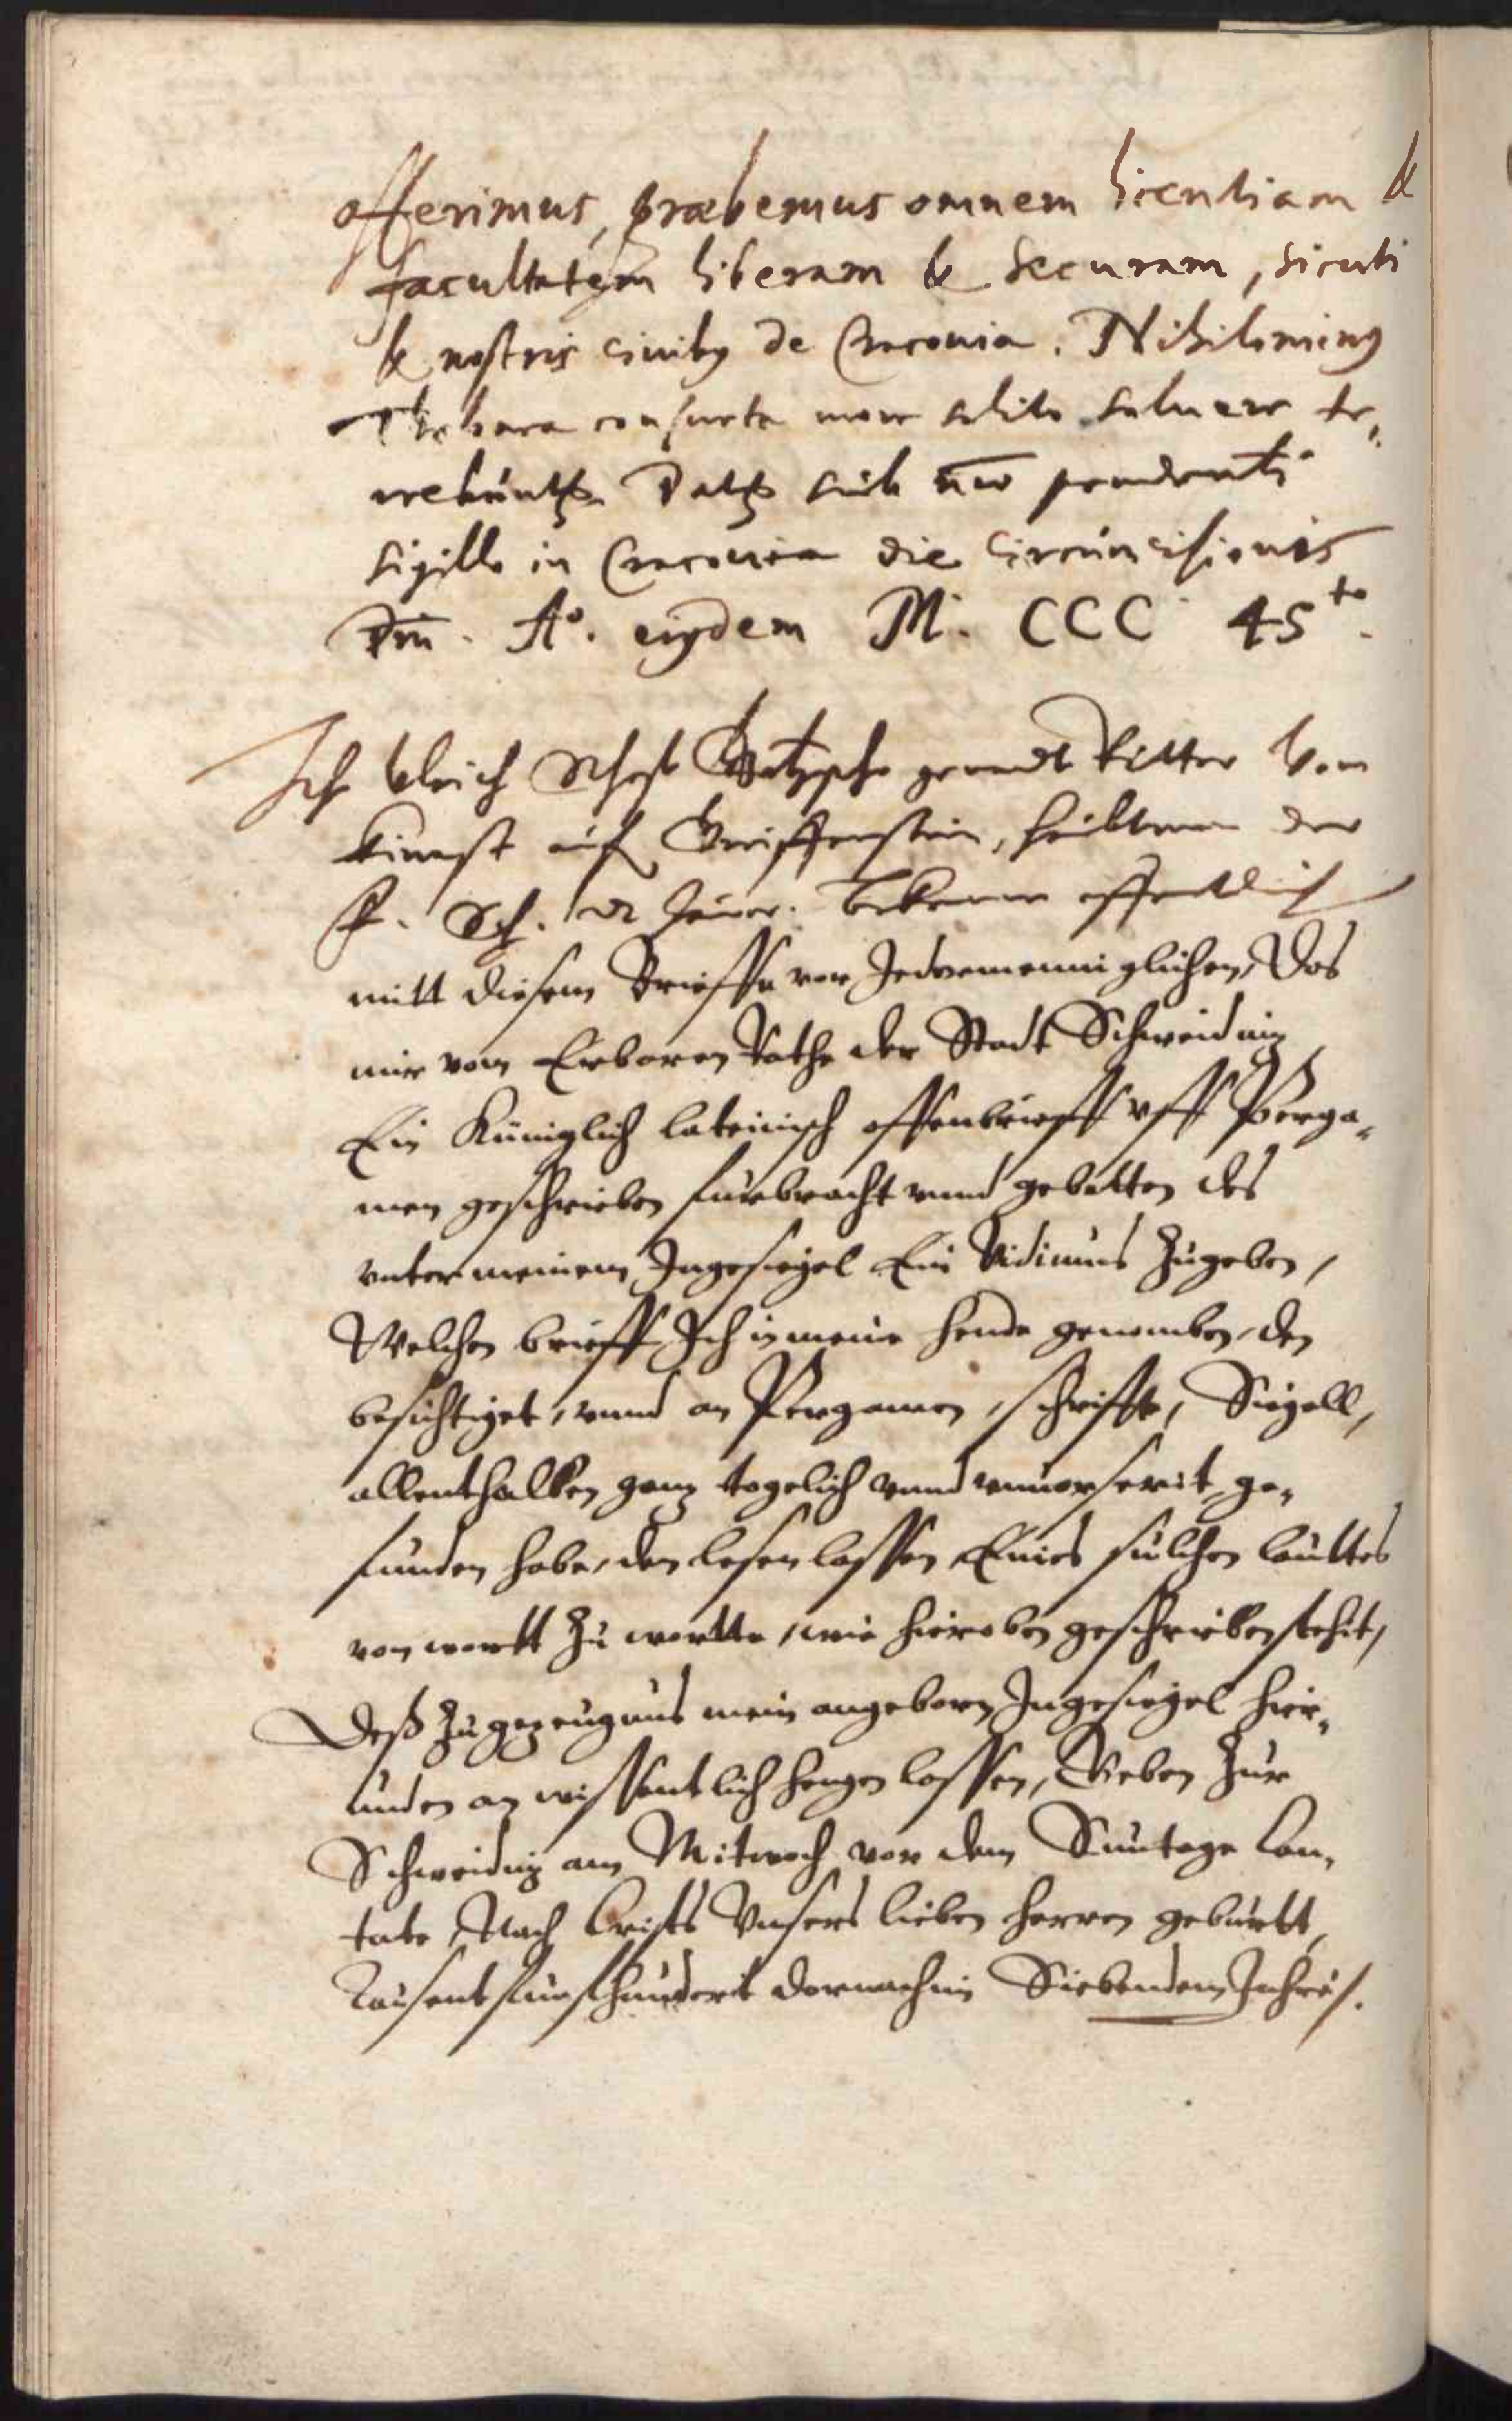 offerimus, præbemus omnem licentiam &
facultatem liberam & securam, sicuti
& nostris civibꝫ de Cracovia. Nihilominꝰ
consueta more solito soluere te,,
nebuntꝫ Datꝫ sub nrō pendenti
sigillo in Cracovia die Circumcisionis
Dnī. A°. eiꝰdem M. CCC 45to.
Ich Vlrich Schoff Gotzsche genandt Ritter vom
Kinast auf Greiffenstein, heübtman der
F. Sch. vn Jauer. Bekenne offentlich
mitt diesem Brieffe vor Jedermenniglichen, Das
mir vom Erbaren Rathe der Stadt Schweidniz
Ein Küniglich lateinisch offenbrieff vff Perga,,
men geschrieben fürbracht vnnd gebetten des
vnter meinem Ingesiegel Ein Vidimus zugeben,
Welchen brieff Ich in meine hende genomben, den
besichtiget, vnnd an Pergamen, schrifft, Siegell,
allenthalben ganz togelich vnnd vnuorserit, ge,,
funden habe, den lesen lassen, Eines sülchen lauttes
von wortt zu wortte, wie hieroben geschrieben stehit,
Deß zu gezeugnus mein angeborn Ingesiegel hier,,
unden an wissentlich hengen lassen, Geben zur
Schweidniz am Mitwoch vor dem Suntage Can,,
tate Nach Crists Vnsers lieben herren geburtt,
Tausent fünfhundert dornach im Siebenden Jahre.